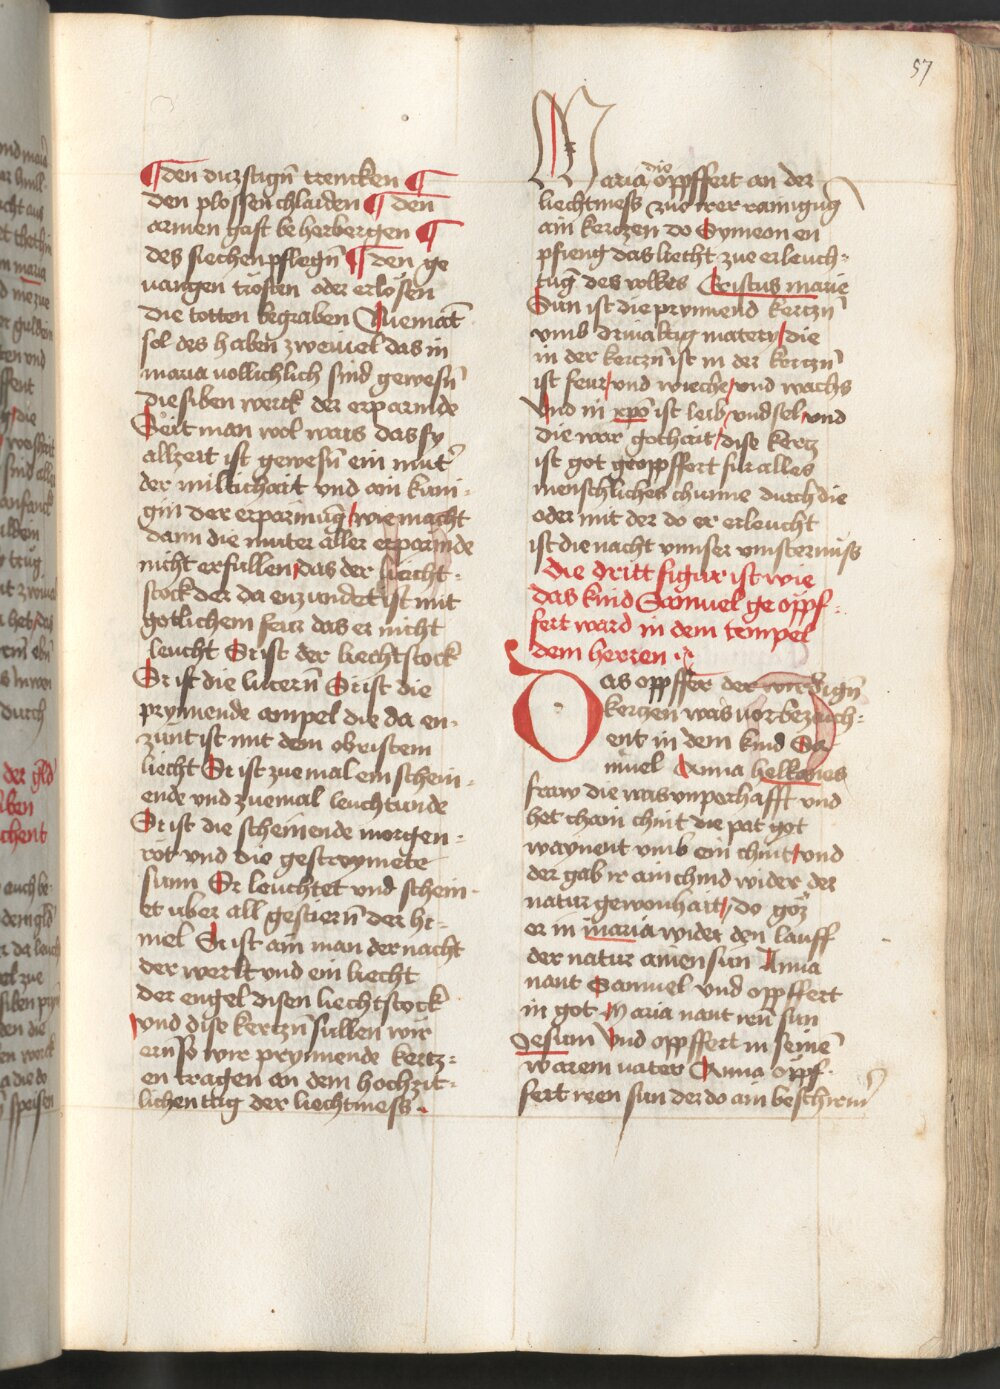 57
¶ den durstigñ trencken ¶
den plossen chlaiden ¶ den
armen gast beherbergen ¶
des siechen pflegñ ¶ den ge
uangen trösten oder erlösen
die totten begraben Nuemāt
sol des haben zweiuel das in
maria uollichlich sind gewesñ
die siben werck der erparmde
Seit man wol wais das sy
allzeit ist gewesñ ein mutr̃
der miltichait vnd ain kuni-
gin der erparmūg wie macht
dann die muter aller erparmde
nicht erfullen das der liecht-
stock der da enzundet ist mit
gotlichem feur das er nicht
leucht Er ist der liechtstock
Er ist die lucerñ Er ist die
prynnende ampel die da en-
zunt ist mit dem obristem
liecht Er ist zuemal ein schein-
ende vnd zuemal leuchtunde
Er ist die scheinende morgen-
röt vnd die gestroymete
sunn Er leuchtet vnd schein-
et uber all gestierñ der hi-
mel Er ist ain man der nacht
der werlt vnd ein liecht
der engel disen liechtstock
vnd dise kertzñ sullen wir
ern so wir prynnende kertz-
en tragen an dem hochzit-
lichen tag der liechtmess.
Maria die öppffert an der
liechtmess zuo irer rainigūg
ain kerczen do Symeon en
pfieng das liecht zue erleuch-
tūg des volkes Cristus marie
Sun ist die prynnend kerczñ
vmb driualtig matery die
in der kerczñ ist in der kerczñ
ist feur vnd wieche vnd wachs
Vnd in xpo ist leib vnd sel vnd
die war gothait dise kercz
ist got geoppffert fur alles
menschliches chunne durch die
oder mit der do er erleucht
ist die nacht vnnser vinsternüss
die dritt figur ist wie
das kind Samuel ge öppf-
fert ward in dem tempel
dem herren
Das oppffer der wirdigñ
kerczen was uorbezaich-
ent in dem kind Sa
muel Anna helkanes
fraw die was vnperhafft vnd
het chain chint die pat got
waynent vmb ein chint vnd
der gab ir ain chind wider der
natur gewonhait do goz
er in maria wider den lauff
der natur ainen sun Anna
nant Samuel vnd oppffert
in got Maria nant irñ sun
Jesum Vnd oppffert in seinē
warem uater Anna öpf-
fert iren sun der do ain beschirm̄